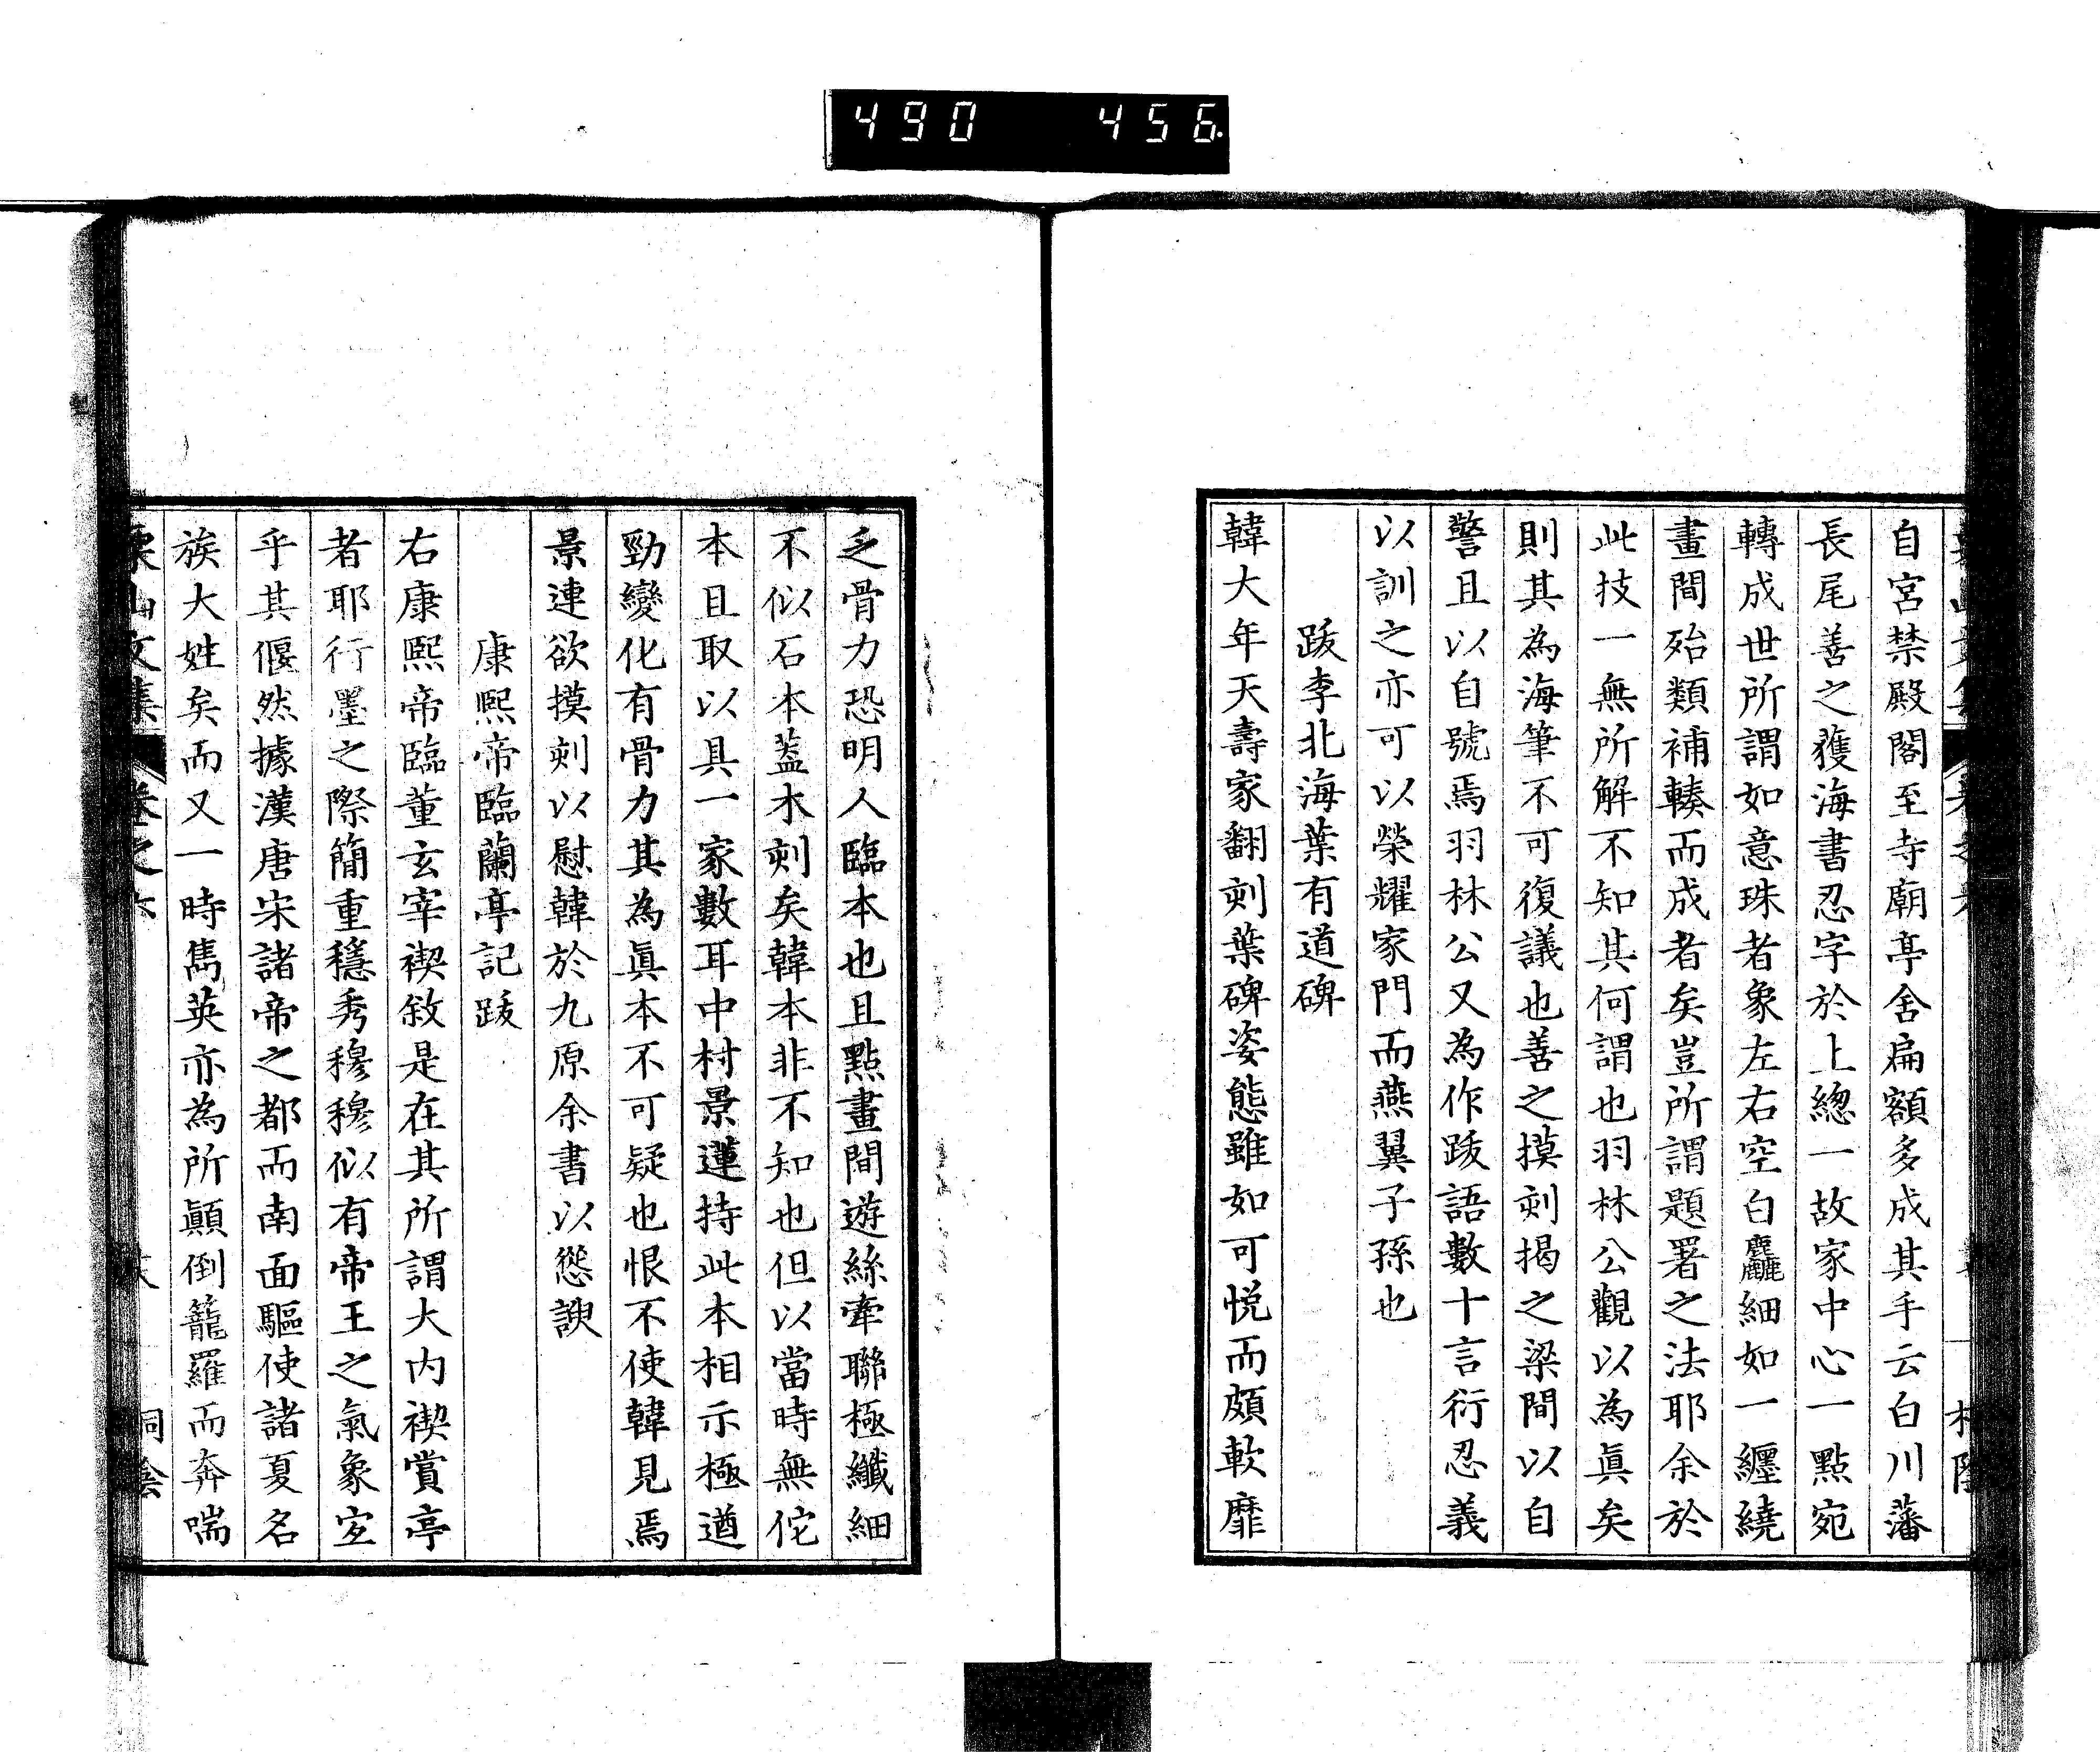 490 456.
自宮禁殿閣至寺廟亭舍扁額多成其手云白川藩
長尾善之獲海書忍字於上總一故家中心一點宛
轉成世所謂如意珠者象左右空白麤細如一纒繞
畫間殆類補輳而成者矣豈所謂題署之法耶余於
此技一無所解不知其何謂也羽林公觀以為眞矣
則其為海筆不可復議也善之摸刻揭之梁間以自
警且以自號焉羽林公又為作跋語數十言衍忍義
以訓之亦可以榮耀家門而燕翼子孫也
跋李北海葉有道碑
韓大年天壽家翻刻葉碑姿態雖如可悅而頗軟靡
乏骨力恐明人臨本也且點畫間遊絲牽聯極纖細
不似石本蓋木刻矣韓本非不知也但以當時無佗
本且取以具一家數耳中村景蓮持此本相示極遒
勁變化有骨力其為眞本不可疑也恨不使韓見焉
景連欲摸刻以慰韓於九原余書以慫諛
康熙帝臨蘭亭記跋
右康熙帝臨董玄宰禊敘是在其所謂大内禊賞亭
者耶行墨之際簡重穩秀穆穆似有帝王之氣象宜
乎其偃然據漢唐宋諸帝之都而南面驅使諸夏名
族大姓矣而又一時雋英亦為所顚倒籠羅而奔喘
栗山文集 卷之六